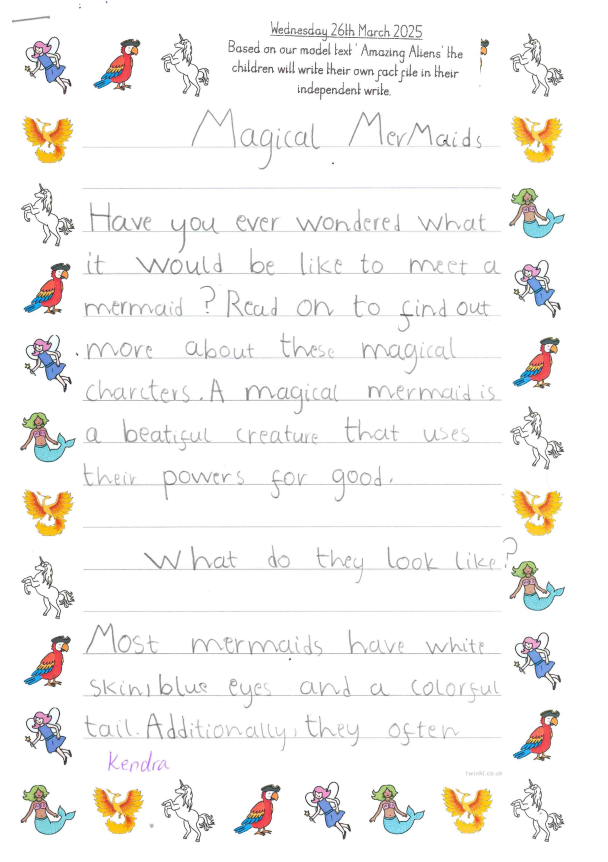 Wednesday 26th March 2025
Based on our model text ' Amazing Aliens' the
children will write their own fact file in their
independent write.
Magical MerMaids
Have you ever wondered what
it would be like to meet a
mermaid ? Read on to find out
more about these magical
charcters. A magical mermaid is
a beatiful creature that uses
their powers for good.
What do they look like?
Most mermaids have white
skin, blue eyes and a colorful
tail. Additionally, they often
Kendra
twinkl.co.uk